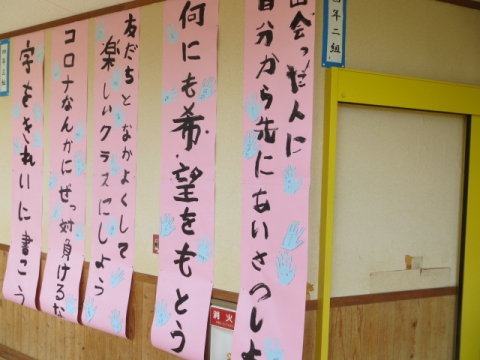 四年二組
出会った人に
自分から先にあいさつしよ
何にも希望をもとう
友だちとなかよくして
楽しいクラスにしよう
コロナなんかにぜっ対負けるな
字をきれいに書こう
四年三組
消火